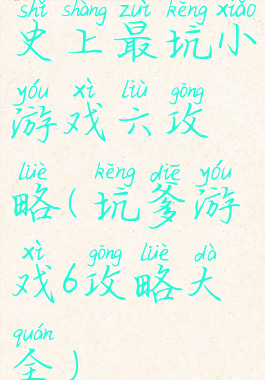 shǐ shàng zuì kēng xiǎo
史上最坑小
yóu xì liù gōng
游戏六攻
lüè kēng diē yóu
略(坑爹游
xì gōng lüè dà
戏6攻略大
quán
全)